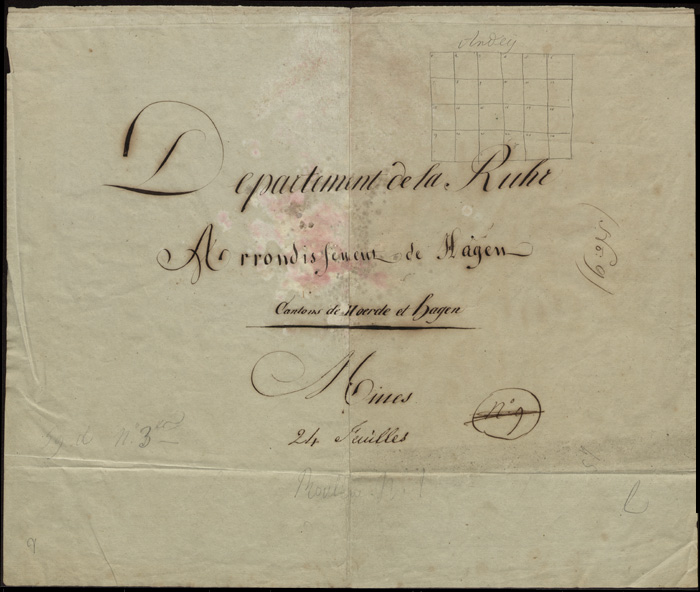 Departement de la Ruhr
Arrondissement de Hagen
Cantons de Hoerde et hagen
Mines
24 Feuilles
N.º 9
N.º 3